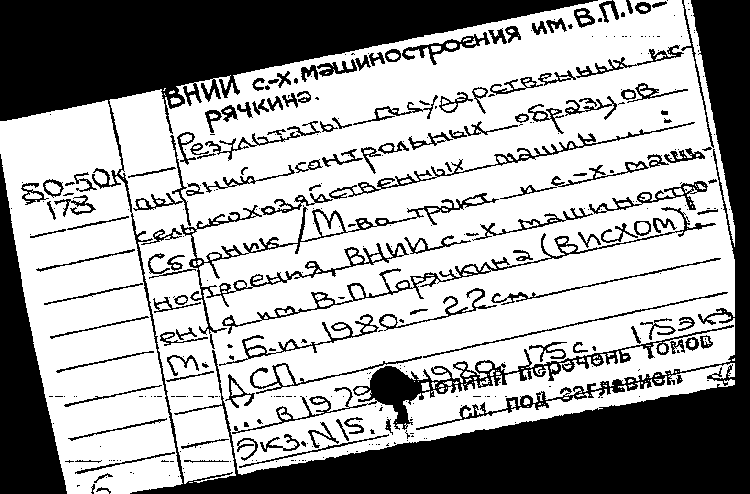 ВНИИ с.-х. машиностроения им. В.П. Го-
рячкина.
80-50к
178
Результаты государственных ис-
пытаний контрольных образцов
сельскохозяйственных машин ... :
Сборник / М-во тракт. и с.-х. маши-
ностроения, ВНИИ с.-х. машиностро-
ения им. В.П. Горячкина (ВИСХОМ). -
М. : Б.и., 1980. - 22 см.
ДСП.
... в 1979 1980. 175 с. 175 экз
Экз. N 15.
Полный перечень томов
см. под заглавием